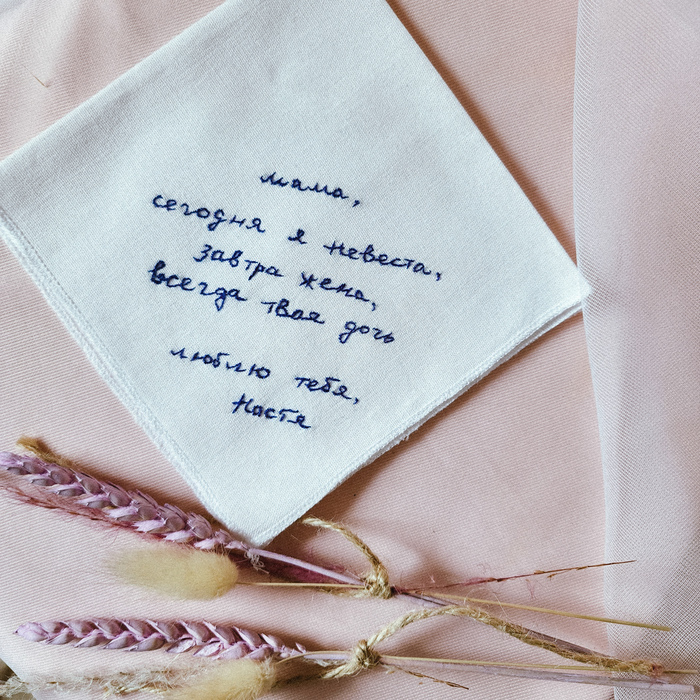 мама,
сегодня я невеста,
завтра жена,
всегда твоя дочь
люблю тебя,
Настя